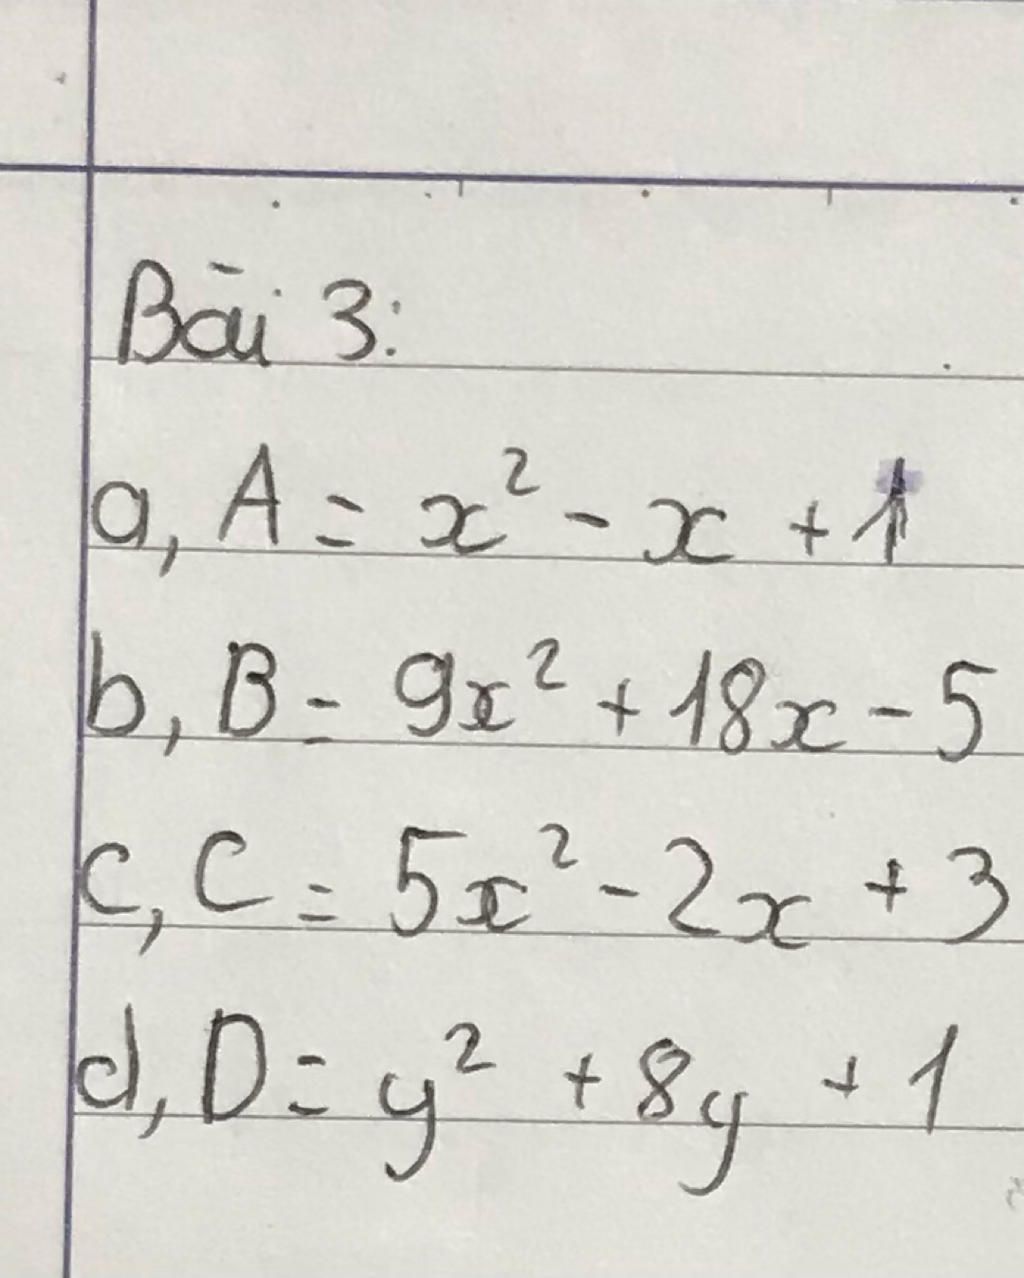 Bài 3:
a, A = x² - x + 1
b, B = 9x² + 18x - 5
c, C = 5x² - 2x + 3
d, D = y² + 8y + 1